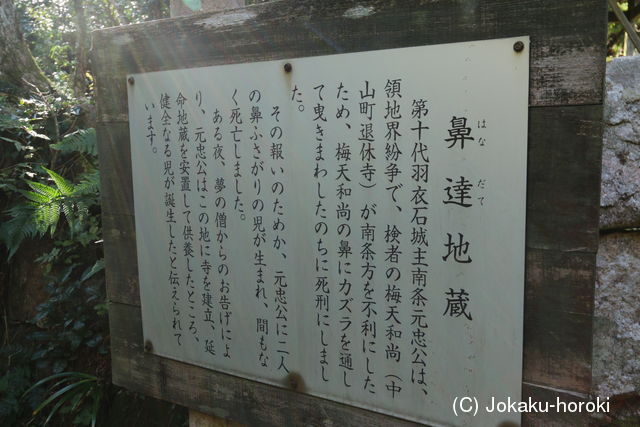 鼻達地蔵
はなだて
第十代羽衣石城主南条元忠公は、
領地界紛争で、検者の梅天和尚（中
山町退休寺）が南条方を不利にした
ため、梅天和尚の鼻にカズラを通し
て曳きまわしたのちに死刑にしまし
た。
その報いのためか、元忠公に二人
の鼻ふさがりの児が生まれ、間もな
く死亡しました。
ある夜、夢の僧からのお告げによ
り、元忠公はこの地に寺を建立、延
命地蔵を安置して供養したところ、
健全なる児が誕生したと伝えられて
います。
(C) Jokaku-horoki